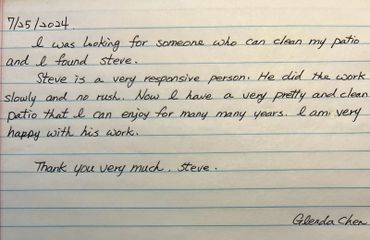 7/25/2024.
I was looking for someone who can clean my patio
and I found Steve.
Steve is a very responsive person. He did the work
slowly and no rush. Now I have a very pretty and clean
patio that I can enjoy for many many years. I am very
happy with his work.
Thank you very much, Steve.
Glenda Chen